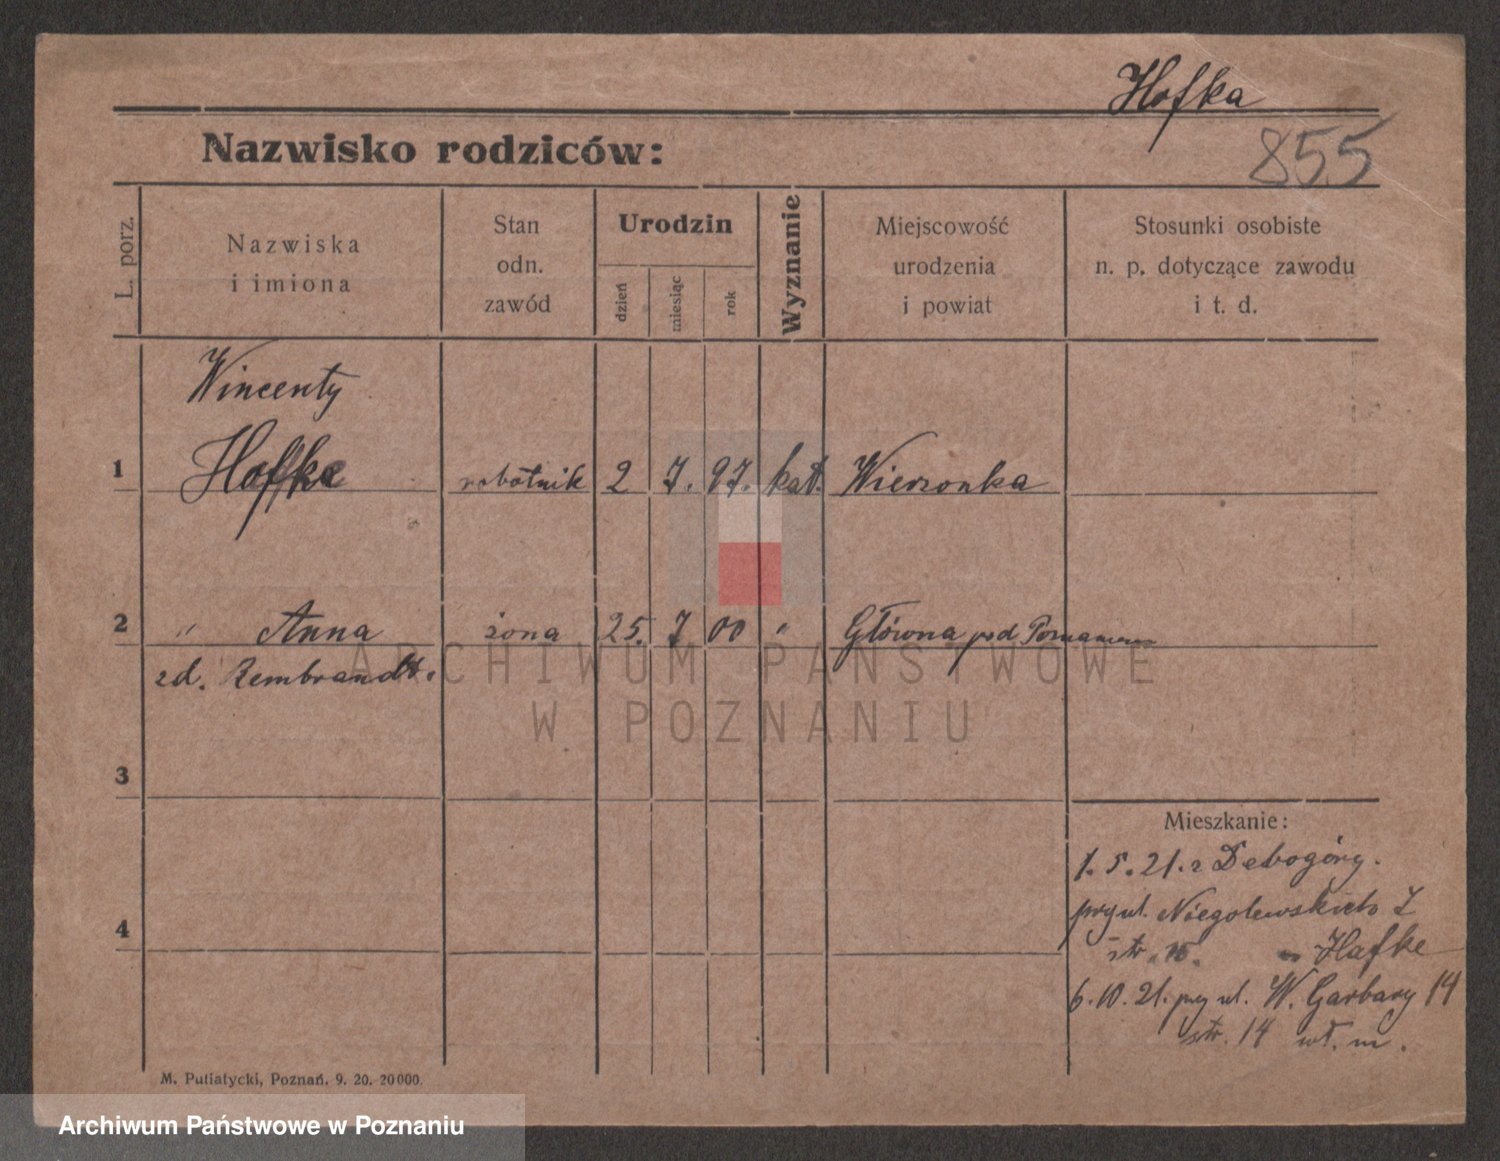 Hofka
Nazwisko rodziców:
855
L. porz.
Nazwiska
i imiona
Stan
odn.
zawód
Urodzin
dzień
miesiąc
rok
Wyznanie
Miejscowość
urodzenia
i powiat
Stosunki osobiste
n. p. dotyczące zawodu
i t. d.
Wincenty
1 Hofke robotnik 2 7. 97. kat. Wierzonka
2 " Anna żona 25. 7 00 " Główna pod Poznaniem
zd. Rembrandt.
ARCHIWUM PAŃSTWOWE
W POZNANIU
3
Mieszkanie:
1. 5. 21. z Dębogóry.
przy ul. Niegolewskich 7
4
str. 15. Hafke
6. 10. 21. przy ul. W. Garbary 14
str. 14 wł. m.
M. Putiatycki, Poznań. 9. 20. 20000.
Archiwum Państwowe w Poznaniu